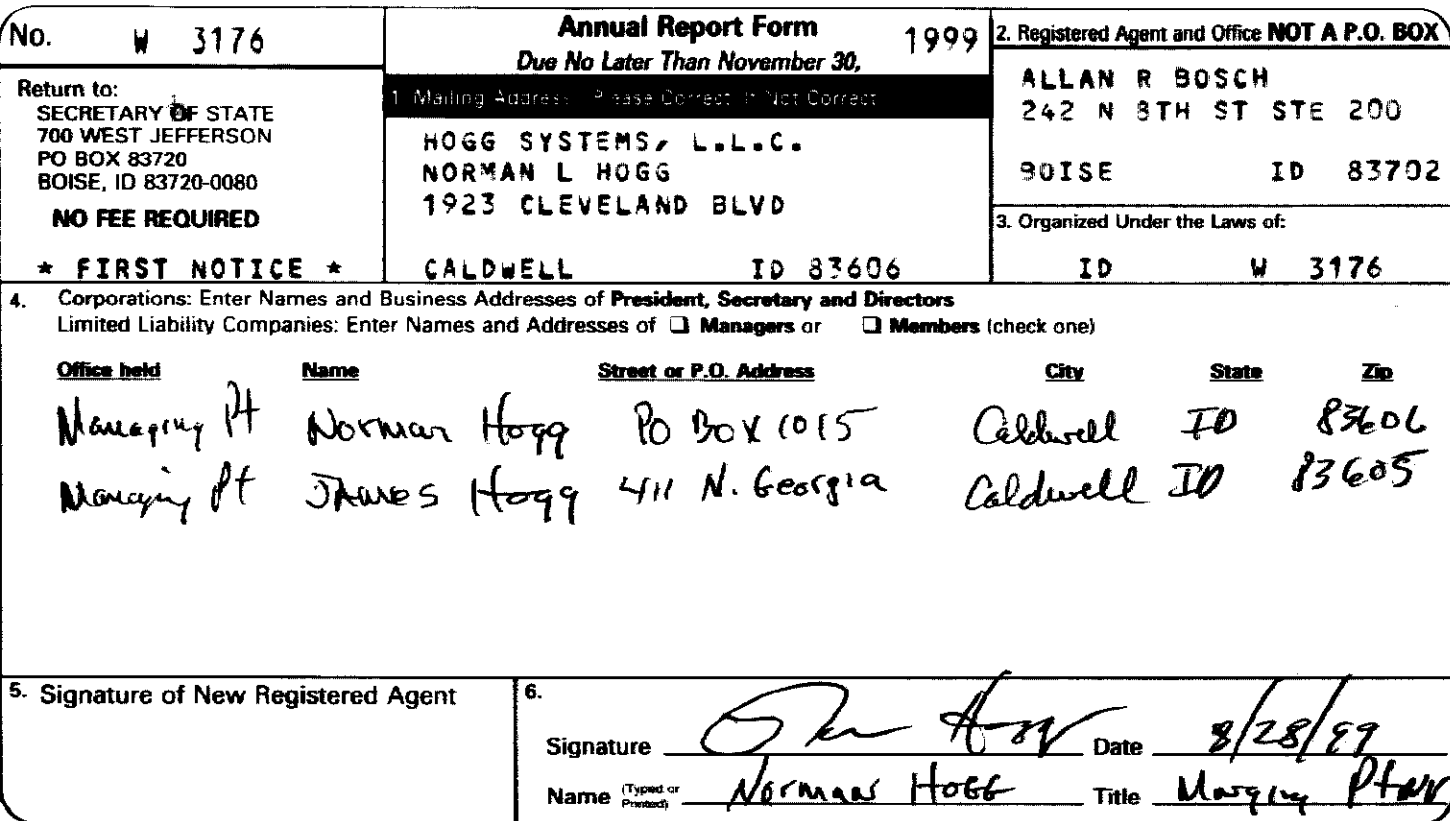 No. W 3176
Annual Report Form 1999
Due No Later Than November 30,
Return to:
SECRETARY OF STATE
700 WEST JEFFERSON
PO BOX 83720
BOISE, ID 83720-0080
NO FEE REQUIRED
* FIRST NOTICE *
1. Mailing Address: Please Correct If Not Correct
HOGG SYSTEMS, L.L.C.
NORMAN L HOGG
1923 CLEVELAND BLVD
CALDWELL ID 83606
2. Registered Agent and Office NOT A P.O. BOX
ALLAN R BOSCH
242 N 8TH ST STE 200
BOISE ID 83702
3. Organized Under the Laws of:
ID W 3176
4. Corporations: Enter Names and Business Addresses of President, Secretary and Directors
Limited Liability Companies: Enter Names and Addresses of ❑ Managers or ❑ Members (check one)
Office held Name Street or P.O. Address City State Zip
Managing Pt Norman Hogg PO Box 1015 Caldwell ID 83606
Managing Pt James Hogg 411 N. Georgia Caldwell ID 83605
5. Signature of New Registered Agent
6.
Signature Hogg Date 8/28/99
Name (Typed or Printed) Norman Hogg Title Managing Ptnr